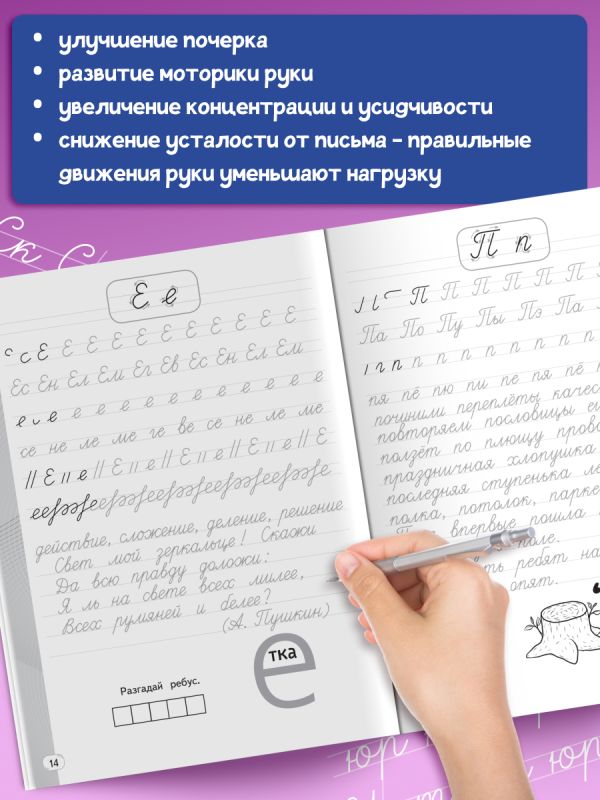 • улучшение почерка
• развитие моторики руки
• увеличение концентрации и усидчивости
• снижение усталости от письма – правильные
движения руки уменьшают нагрузку
Е е
Е Е Е Е Е Е Е Е Е Е
Ес Ен Ел Ем Ег Ев Ес Ен Ел Ем
е е е е е е е е е е е
се не ле ме ге ве се не ле ме
// Е // е // Е // е // Е // е // Е // е // Е
действие, сложение, деление, решение
Свет мой зеркальце! Скажи
Да всю правду доложи:
Я ль на свете всех милее,
Всех румяней и белее?
(А. Пушкин)
Разгадай ребус.
е
тка
14
П п
П П П П П П П
Па По Пу Пы Пэ Па
п п п п п п п п п
пя пё пю пи пе пя пё
починили переплёты качес
повторяем пословицы
ползёт по плющу
праздничная хлопушка
последняя ступенька
полка, потолок, парке
впервые пошла
поле.
ребят на
опят.